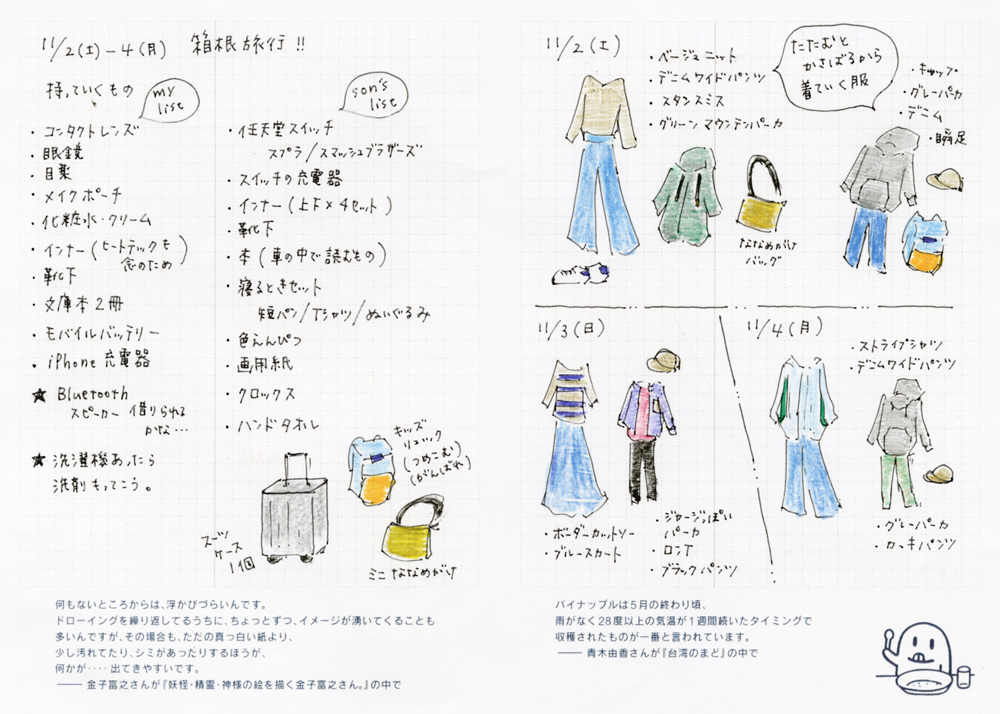 11/2(土)-4(月) 箱根旅行!!
持っていくもの
my
list
・コンタクトレンズ
・眼鏡
・目薬
・メイクポーチ
・化粧水・クリーム
・インナー(ヒートテックも
念のため)
・靴下
・文庫本2冊
・モバイルバッテリー
・iPhone充電器
★ Bluetooth
スピーカー 借りられる
かな…
★ 洗濯機あったら
洗剤もってこう。
son's
list
・任天堂スイッチ
スプラ/スマッシュブラザーズ
・スイッチの充電器
・インナー(上下×4セット)
・靴下
・本(車の中で読むもの)
・寝るときセット
短パン/Tシャツ/ぬいぐるみ
・色えんぴつ
・画用紙
・クロックス
・ハンドタオル
キッズ
リュック
(つめこむ)
(がんばれ)
スーツ
ケース
1個
ミニななめがけ
何もないところからは、浮かびづらいんです。
ドローイングを繰り返してるうちに、ちょっとずつ、イメージが湧いてくることも
多いんですが、その場合も、ただの真っ白い紙より、
少し汚れてたり、シミがあったりするほうが、
何かが‥‥出てきやすいです。
―― 金子富之さんが『妖怪・精霊・神様の絵を描く金子富之さん。』の中で
11/2(土)
・ベージュニット
・デニムワイドパンツ
・スタンスミス
・グリーンマウンテンパーカ
たたむと
かさばるから
着ていく服
・キャップ
・グレーパーカ
・デニム
・瞬足
ななめがけ
バッグ
11/3(日)
・ボーダーカットソー
・ブルースカート
・ジャージっぽい
パーカ
・ロンT
・ブラックパンツ
11/4(月)
・ストライプシャツ
・デニムワイドパンツ
・グレーパーカ
・カーキパンツ
パイナップルは5月の終わり頃、
雨がなく28度以上の気温が1週間続いたタイミングで
収穫されたものが一番と言われています。
―― 青木由香さんが『台湾のまど』の中で